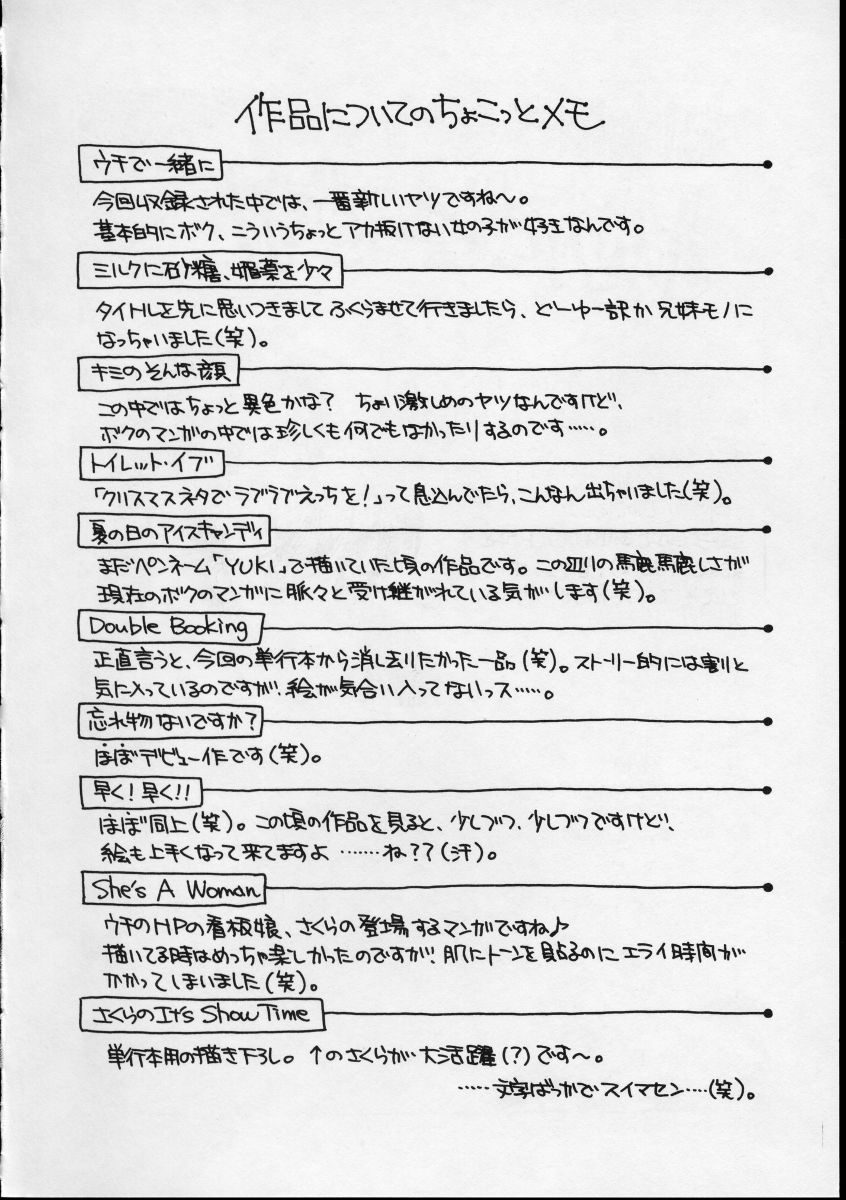 作品についてのちょこっとメモ
ウチで一緒に
今回収録された中では、一番新しいヤツですね～。
基本的にボク、こういうちょっとアカ抜けない女の子が好きなんです。
ミルクに砂糖、媚薬を少々
タイトルを先に思いつきまして ふくらませて行きましたら、どーゆー訳か兄妹モノに
なっちゃいました(笑)。
キミのそんな顔
この中ではちょっと異色かな？ ちょい激しめのヤツなんですけど、
ボクのマンガの中では珍しくも何でもなかったりするのです……。
トイレット・イブ
「クリスマスネタでラブラブえっちを！」って息込んでたら、こんなん出ちゃいました(笑)。
夏の日のアイスキャンディ
まだペンネーム「YUKI」で描いていた頃の作品です。この辺りの馬鹿馬鹿しさが
現在のボクのマンガに脈々と受け継がれている気がします(笑)。
Double Booking
正直言うと、今回の単行本から消し去りたかった一品(笑)。ストーリー的には割と
気に入っているのですが、絵が気合い入ってないっス……。
忘れ物ないですか？
ほぼデビュー作です(笑)。
早く！早く!!
ほぼ同上(笑)。この頃の作品を見ると、少しづつ、少しづつですけど、
絵も上手くなって来てますよ ……ね？？(汗)。
She's A Woman
ウチのHPの看板娘、さくらの登場するマンガですね♪
描いてる時はめっちゃ楽しかったのですが、肌にトーンを貼るのにエライ時間が
かかってしまいました(笑)。
さくらのIt's Show Time
単行本用の描き下ろし。↑のさくらが大活躍(？)です～。
……文字ばっかでスイマセン…(笑)。